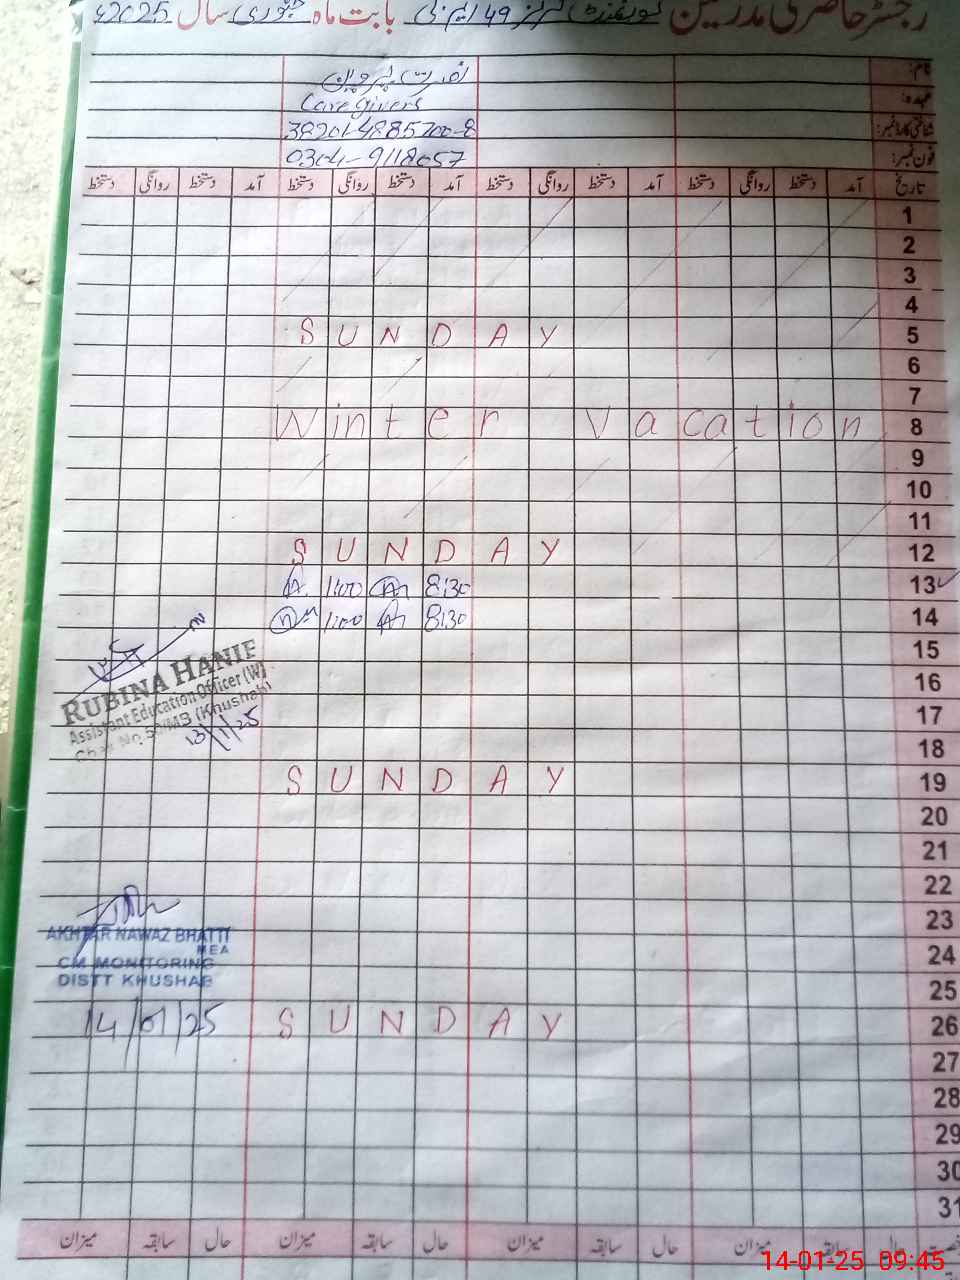 رجسٹر حاضری مدرسین گورنمنٹ گرلز 49 ایم بی بابت ماہ جنوری سال 2025ء
نام: نصرت پروین
عہدہ: Care givers
شناختی کارڈ نمبر: 38201-4885700-8
فون نمبر: 0304-9118057
تاریخ آمد دستخط روانگی دستخط آمد دستخط روانگی دستخط آمد دستخط روانگی دستخط آمد دستخط روانگی دستخط
1
2
3
4
SUNDAY 5
6
7
Winter Vacation 8
9
10
11
SUNDAY 12
1:00 8:30 13
1:00 8:30 14
15
RUBINA HANIF 16
Assistant Education Officer (W) 17
(Khushab)
13/1/25 18
SUNDAY 19
20
21
22
23
AKHTAR NAWAZ BHATTI
MEA 24
CM MONITORING
DISTT KHUSHAB 25
14/01/25 SUNDAY 26
27
28
29
30
31
حال سابقہ میزان حال سابقہ میزان حال سابقہ میزان حال سابقہ میزان
14-01-25 09:45